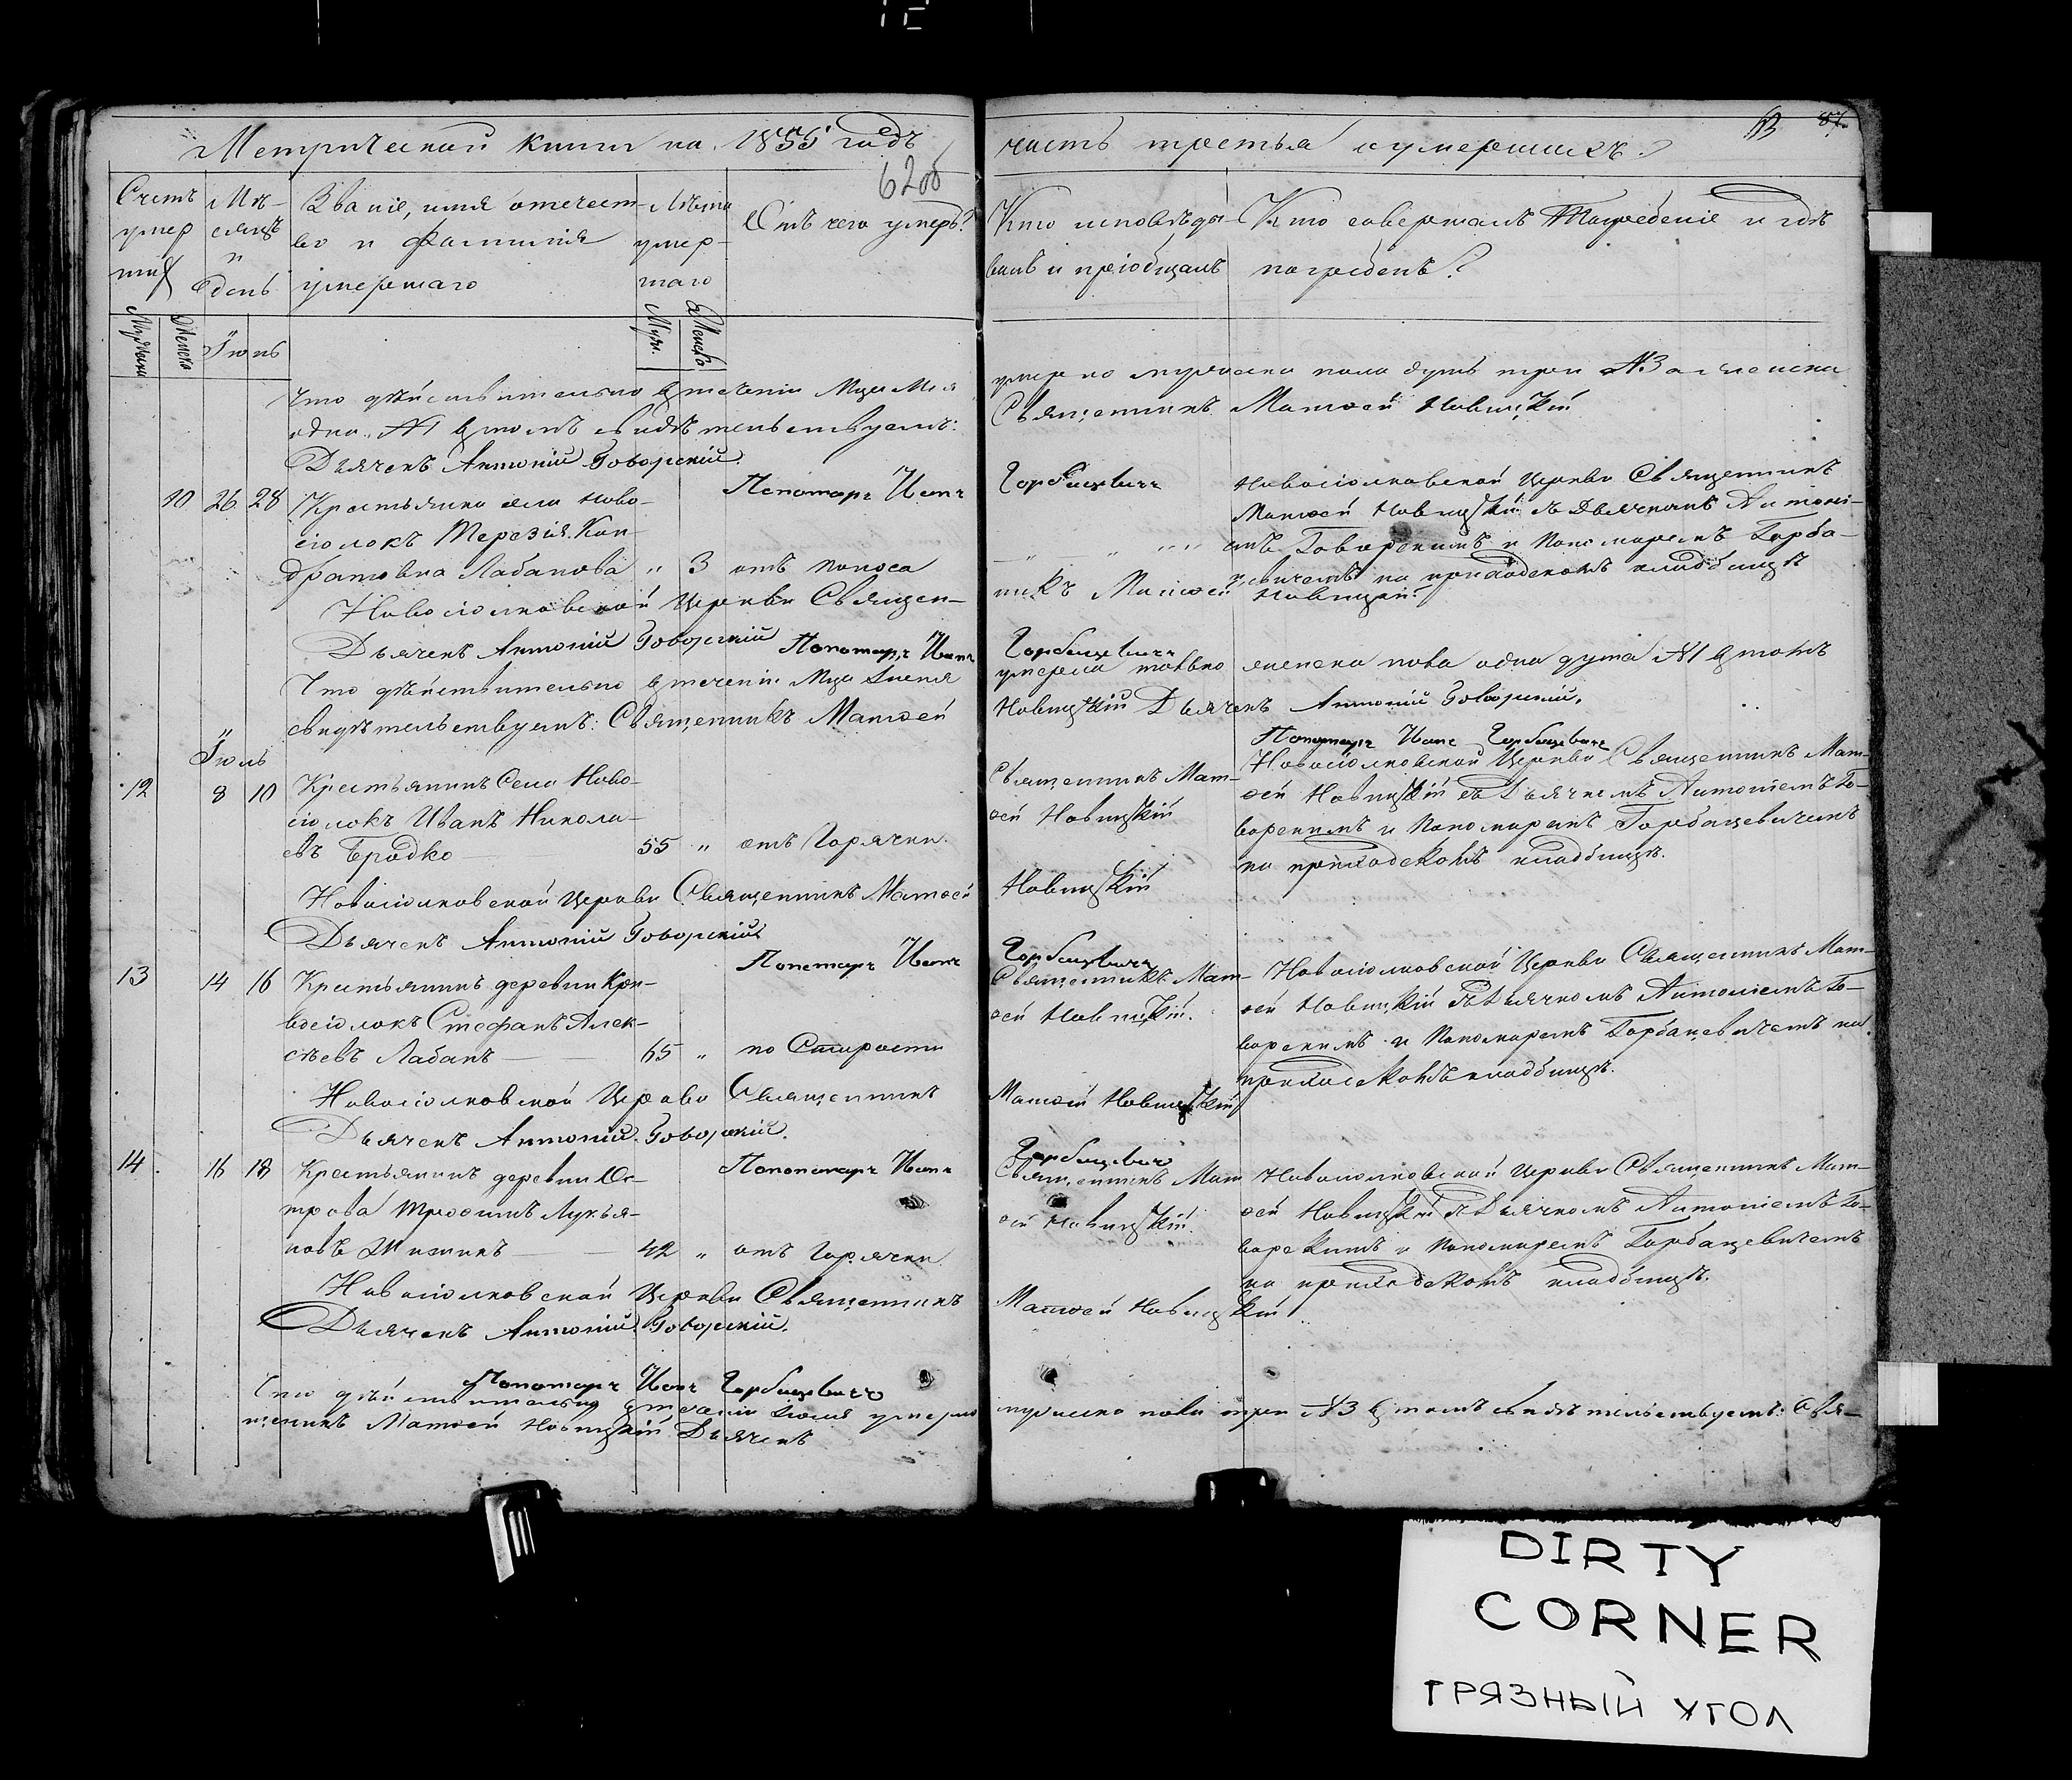 Метрической книги на 1855 годъ
часть третья о умершихъ.
63
87.
62об
Счетъ умер ших
Мѣ- сяцъ и день
Званіе, имя отчест-
во и фамилія
умершаго
Лѣта
умер-
шаго
Отъ чего умеръ?
Кто исповѣды-
валъ и пріобщалъ
Кто совершалъ Погребеніе и гдѣ
погребенъ?
Мужеска
Женска
Муж.
Женск.
Іюнь
Что дѣйствительно в теченіи Мца Мая
умерло мужеска пола душъ три №3 а женска
одна №1 в томъ свидѣтельствуемъ:
Священникъ Матѳей Новицкій
Дьячекъ Антоній Говорскій.
Пономарь Иванъ Горбацевичъ
10 26 28 Крестьянка села Ново-
сіолокъ Терезія Кон-
дратовна Лабанова " 3 отъ поноса
Новосіолковской Церкви Священникъ
Матѳей Новицкій съ Дьячкомъ Антоні-
емъ Говорскимъ и Пономаремъ Горба-
цевичемъ на приходскомъ кладбищѣ
Новосіолковской Церкви Священ-
никъ Матѳей Новицкій.
Дьячекъ Антоній Говорскій Пономарь Иванъ Горбацевичъ
Что дѣйствительно в теченіи Мца Іюня умерла только женска пола одна душа №1 в томъ
свидѣтельствуемъ: Священникъ Матѳей Новицкій Дьячекъ Антоній Говорскій.
Пономарь Иванъ Горбацевичъ
Іюль
12 8 10 Крестьянинъ Села Ново-
сіолокъ Иванъ Никола-
евъ Бродко 55 " отъ Горячки.
Священникъ Мат-
ѳей Новицкій
Новосіолковской Церкви Священникъ Мат-
ѳей Новицкій съ Дьячкомъ Антоніемъ Го-
ворскимъ и Пономаремъ Горбацевичемъ
на приходскомъ кладбищѣ.
Новосіолковской Церкви Священникъ Матѳей Новицкій
Дьячекъ Антоній Говорскій
Пономарь Иванъ Горбацевичъ
13 14 16 Крестьянинъ деревни Кри-
восіолокъ Стефанъ Алек-
сѣевъ Лабанъ 65 " по Старости
Священникъ Мат-
ѳей Новицкій.
Новосіолковской Церкви Священникъ Мат-
ѳей Новицкій съ Дьячкомъ Антоніемъ Го-
ворскимъ и Пономаремъ Горбацевичемъ на
приходскомъ кладбищѣ.
Новосіолковской Церкви Священникъ Матѳей Новицкій
Дьячекъ Антоній Говорскій.
Пономарь Иванъ Горбацевичъ
14 16 18 Крестьянинъ деревни Ос-
трова Трофимъ Лукья-
новъ 42 " отъ Горячки
Священникъ Мат
ѳей Новицкій.
Новосіолковской Церкви Священникъ Мат-
ѳей Новицкій съ Дьячкомъ Антоніемъ Го-
ворскимъ и Пономаремъ Горбацевичемъ
на приходскомъ кладбищѣ.
Новосіолковской Церкви Священникъ Матѳей Новицкій.
Дьячекъ Антоній Говорскій.
Пономарь Иванъ Горбацевичъ
Что дѣйствительно в теченіи Іюля умерло мужеска пола три №3 в томъ свидѣтельствуемъ: Свя-
щенникъ Матѳей Новицкій Дьячекъ
DIRTY
CORNER
ГРЯЗНЫЙ УГОЛ